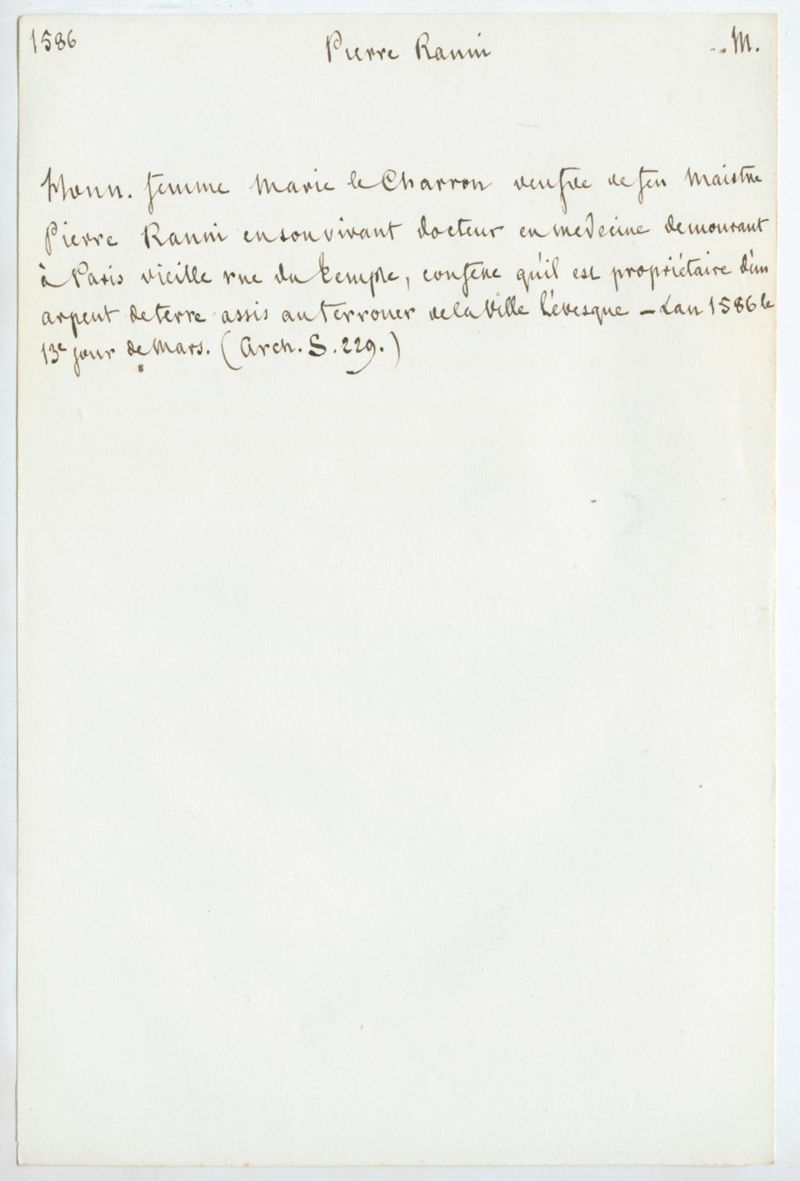 1586 Pierre Ranin M.
Honn. femme Marie le Charron veufve de feu Maistre
Pierre Ranin en son vivant docteur en medecine demourant
à Paris vieille rue du temple, confesse qu'il est propriétaire d'un
arpent de terre assis au terrouer de la Ville l'évesque – Lan 1586 le
13e jour de Mars. (Arch. S. 229.)